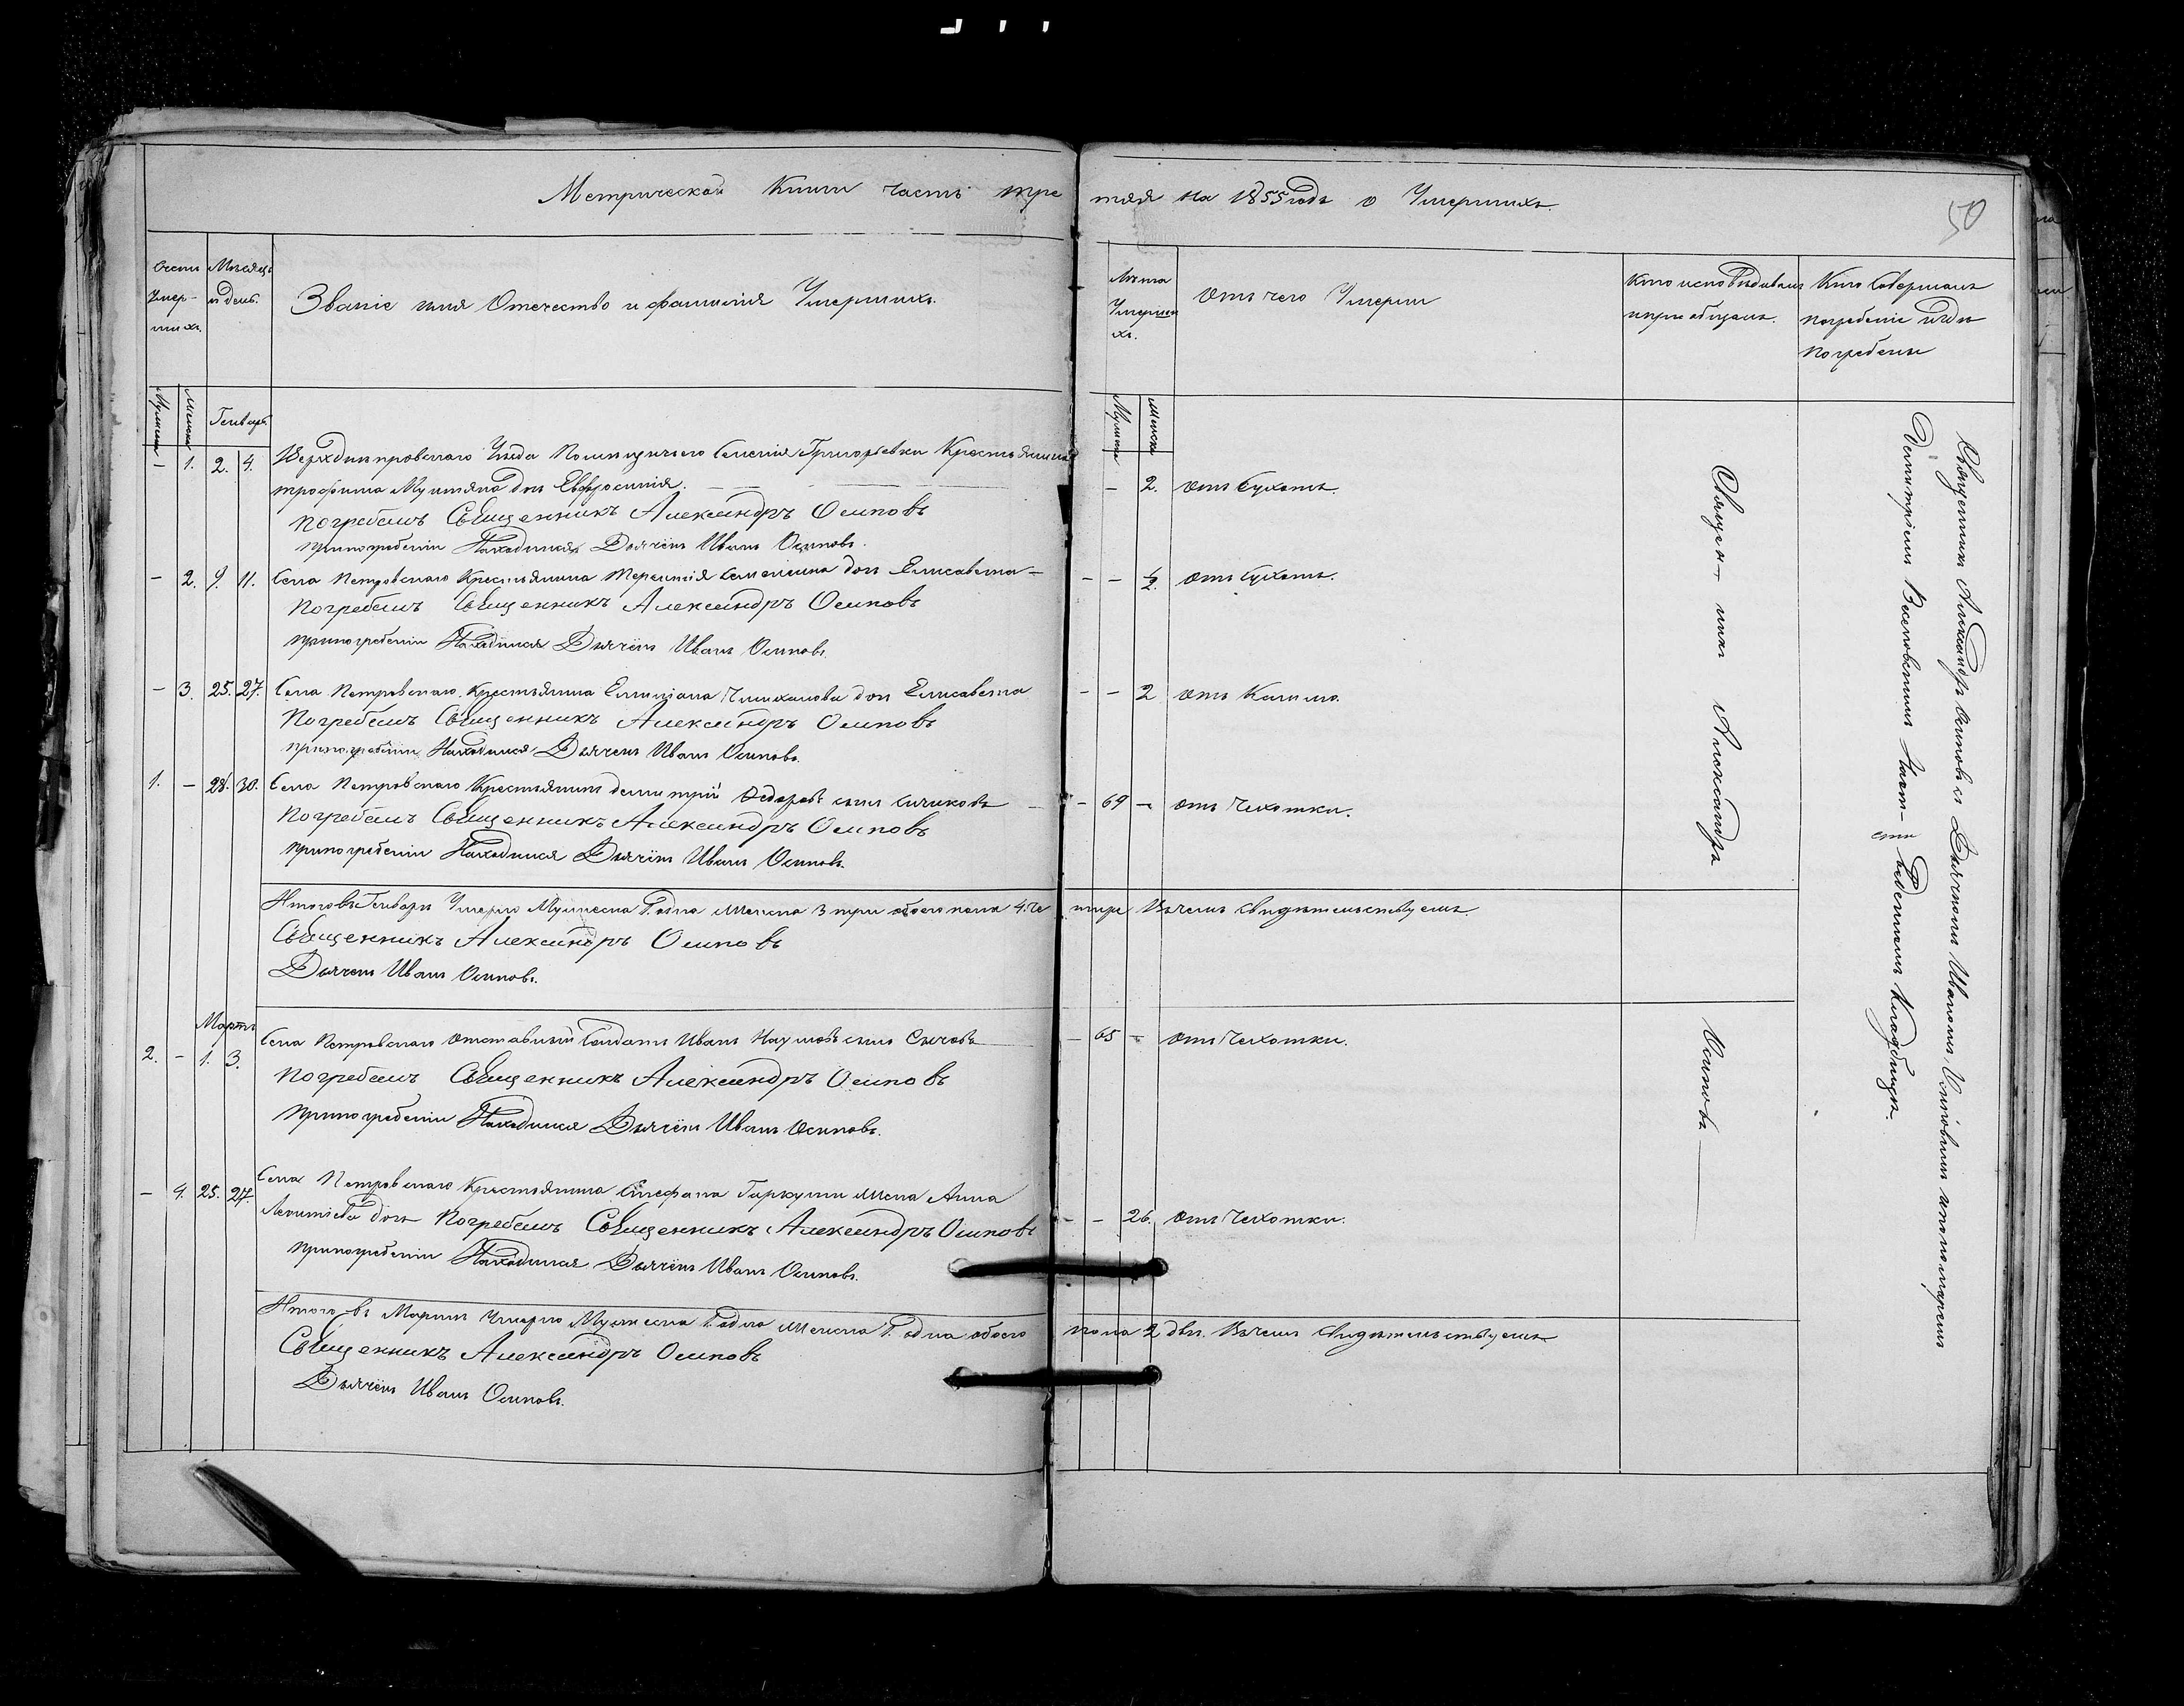 Метрической книги часть тре тяя на 1855 годъ о Умершихъ.
50
Счетъ Умер- шихъ.
Мѣсяцъ и день.
Званіе имя Отечество и фамилія Умершихъ.
Лѣта Умерши хъ.
Отъ чего Умерли
Кто исповѣдывалъ и пріобщалъ.
Кто Совершалъ погребеніе и гдѣ погребены
Мужеска Женска Генварь Мужеска Женска
— 1. 2. 4. Верхднѣпровскаго Уѣзда Помѣщичьего Селенія Григорьевки Крестьянина
трофима дочь Евфросинія. — 2. отъ Сухотъ.
погребалъ Священникъ Александръ Осиповъ
при погребеніи Находился Дьячекъ Иванъ Осиповъ.
— 2. 9. 11. Села Петровскаго Крестьянина Терентія дочь Елисавета — — — 1/2. отъ Сухотъ.
погребалъ Священникъ Александръ Осиповъ
при погребеніи Находился Дьячекъ Иванъ Осиповъ.
— 3. 25. 27. Села Петровскаго Крестьянина дочь Елисавета — — 2 отъ Кашлю.
погребалъ Священникъ Александръ Осиповъ
при погребеніи Находился Дьячекъ Иванъ Осиповъ.
1. — 28. 30. Села Петровскаго Крестьянинъ димитрій Федоровъ сынъ — — 69 — отъ Чехотки.
погребалъ Священникъ Александръ Осиповъ
при погребеніи Находился Дьячекъ Иванъ Осиповъ.
Итого въ Генварѣ Умерло Мужеска 1. одна Женска 3 три обоего пола 4. че тыре Въчемъ свидѣтельствуемъ.
Священникъ Александръ Осиповъ
Дьячекъ Иванъ Осиповъ.
Мартъ
2. — 1. 3. Села Петровскаго отставный Солдатъ Иванъ Наумовъ сынъ Сычовъ — 65 — отъ Чехотки.
погребалъ Священникъ Александръ Осиповъ
при погребеніи Находился Дьячекъ Иванъ Осиповъ.
— 4. 25. 27. Села Петровскаго Крестьянина Стефана Гаркуши жена Анна
Леонтіева дочь погребалъ Священникъ Александръ Осиповъ — — 26. отъ Чехотки.
при погребеніи Находился Дьячекъ Иванъ Осиповъ.
Итого въ Мартѣ Умерло Мужеска 1. одна Женска 1. одна обоего пола 2 двѣ. Въчемъ свидѣтельствуемъ
Священникъ Александръ Осиповъ
Дьячекъ Иванъ Осиповъ.
Священ— никъ Александръ Осиповъ
Священникъ Александръ Осиповъ съ Дьячкомъ Иваномъ Осиповымъ и пономаремъ
Димитріемъ на отведенномъ Кладбищѣ.